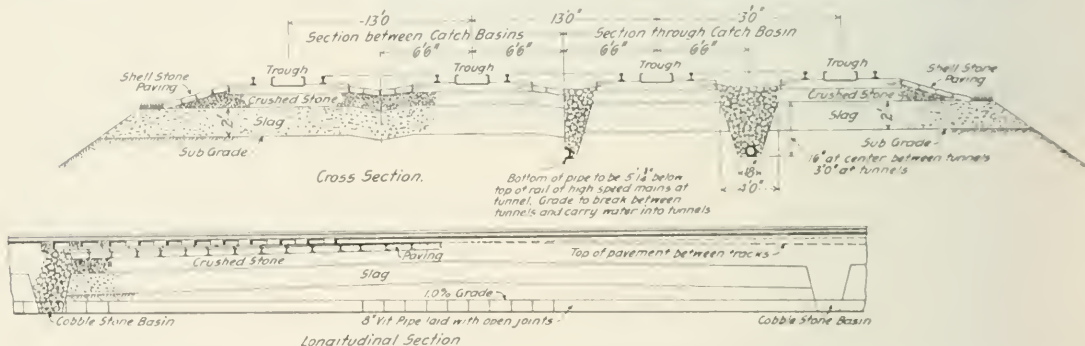 -13'0 13'0" 3'0"
Section between Catch Basins Section through Catch Basin
6'6" 6'6" 6'6" 6'6"
Trough Trough Trough Trough
Shell Stone
Paving
Shell Stone
Paving
Crushed Stone Crushed Stone
2' Slag Slag 2'
Sub Grade Sub Grade
16" at center between tunnels
3'0" at tunnels
Cross Section.
18"
4'0"
Bottom of pipe to be below
top of rail of high speed mains at
tunnel. Grade to break between
tunnels and carry water into tunnels
Crushed Stone Paving Top of pavement between tracks
Slag
1.0% Grade
Cobble Stone Basin 8" Vit Pipe laid with open joints Cobble Stone Basin
Longitudinal Section